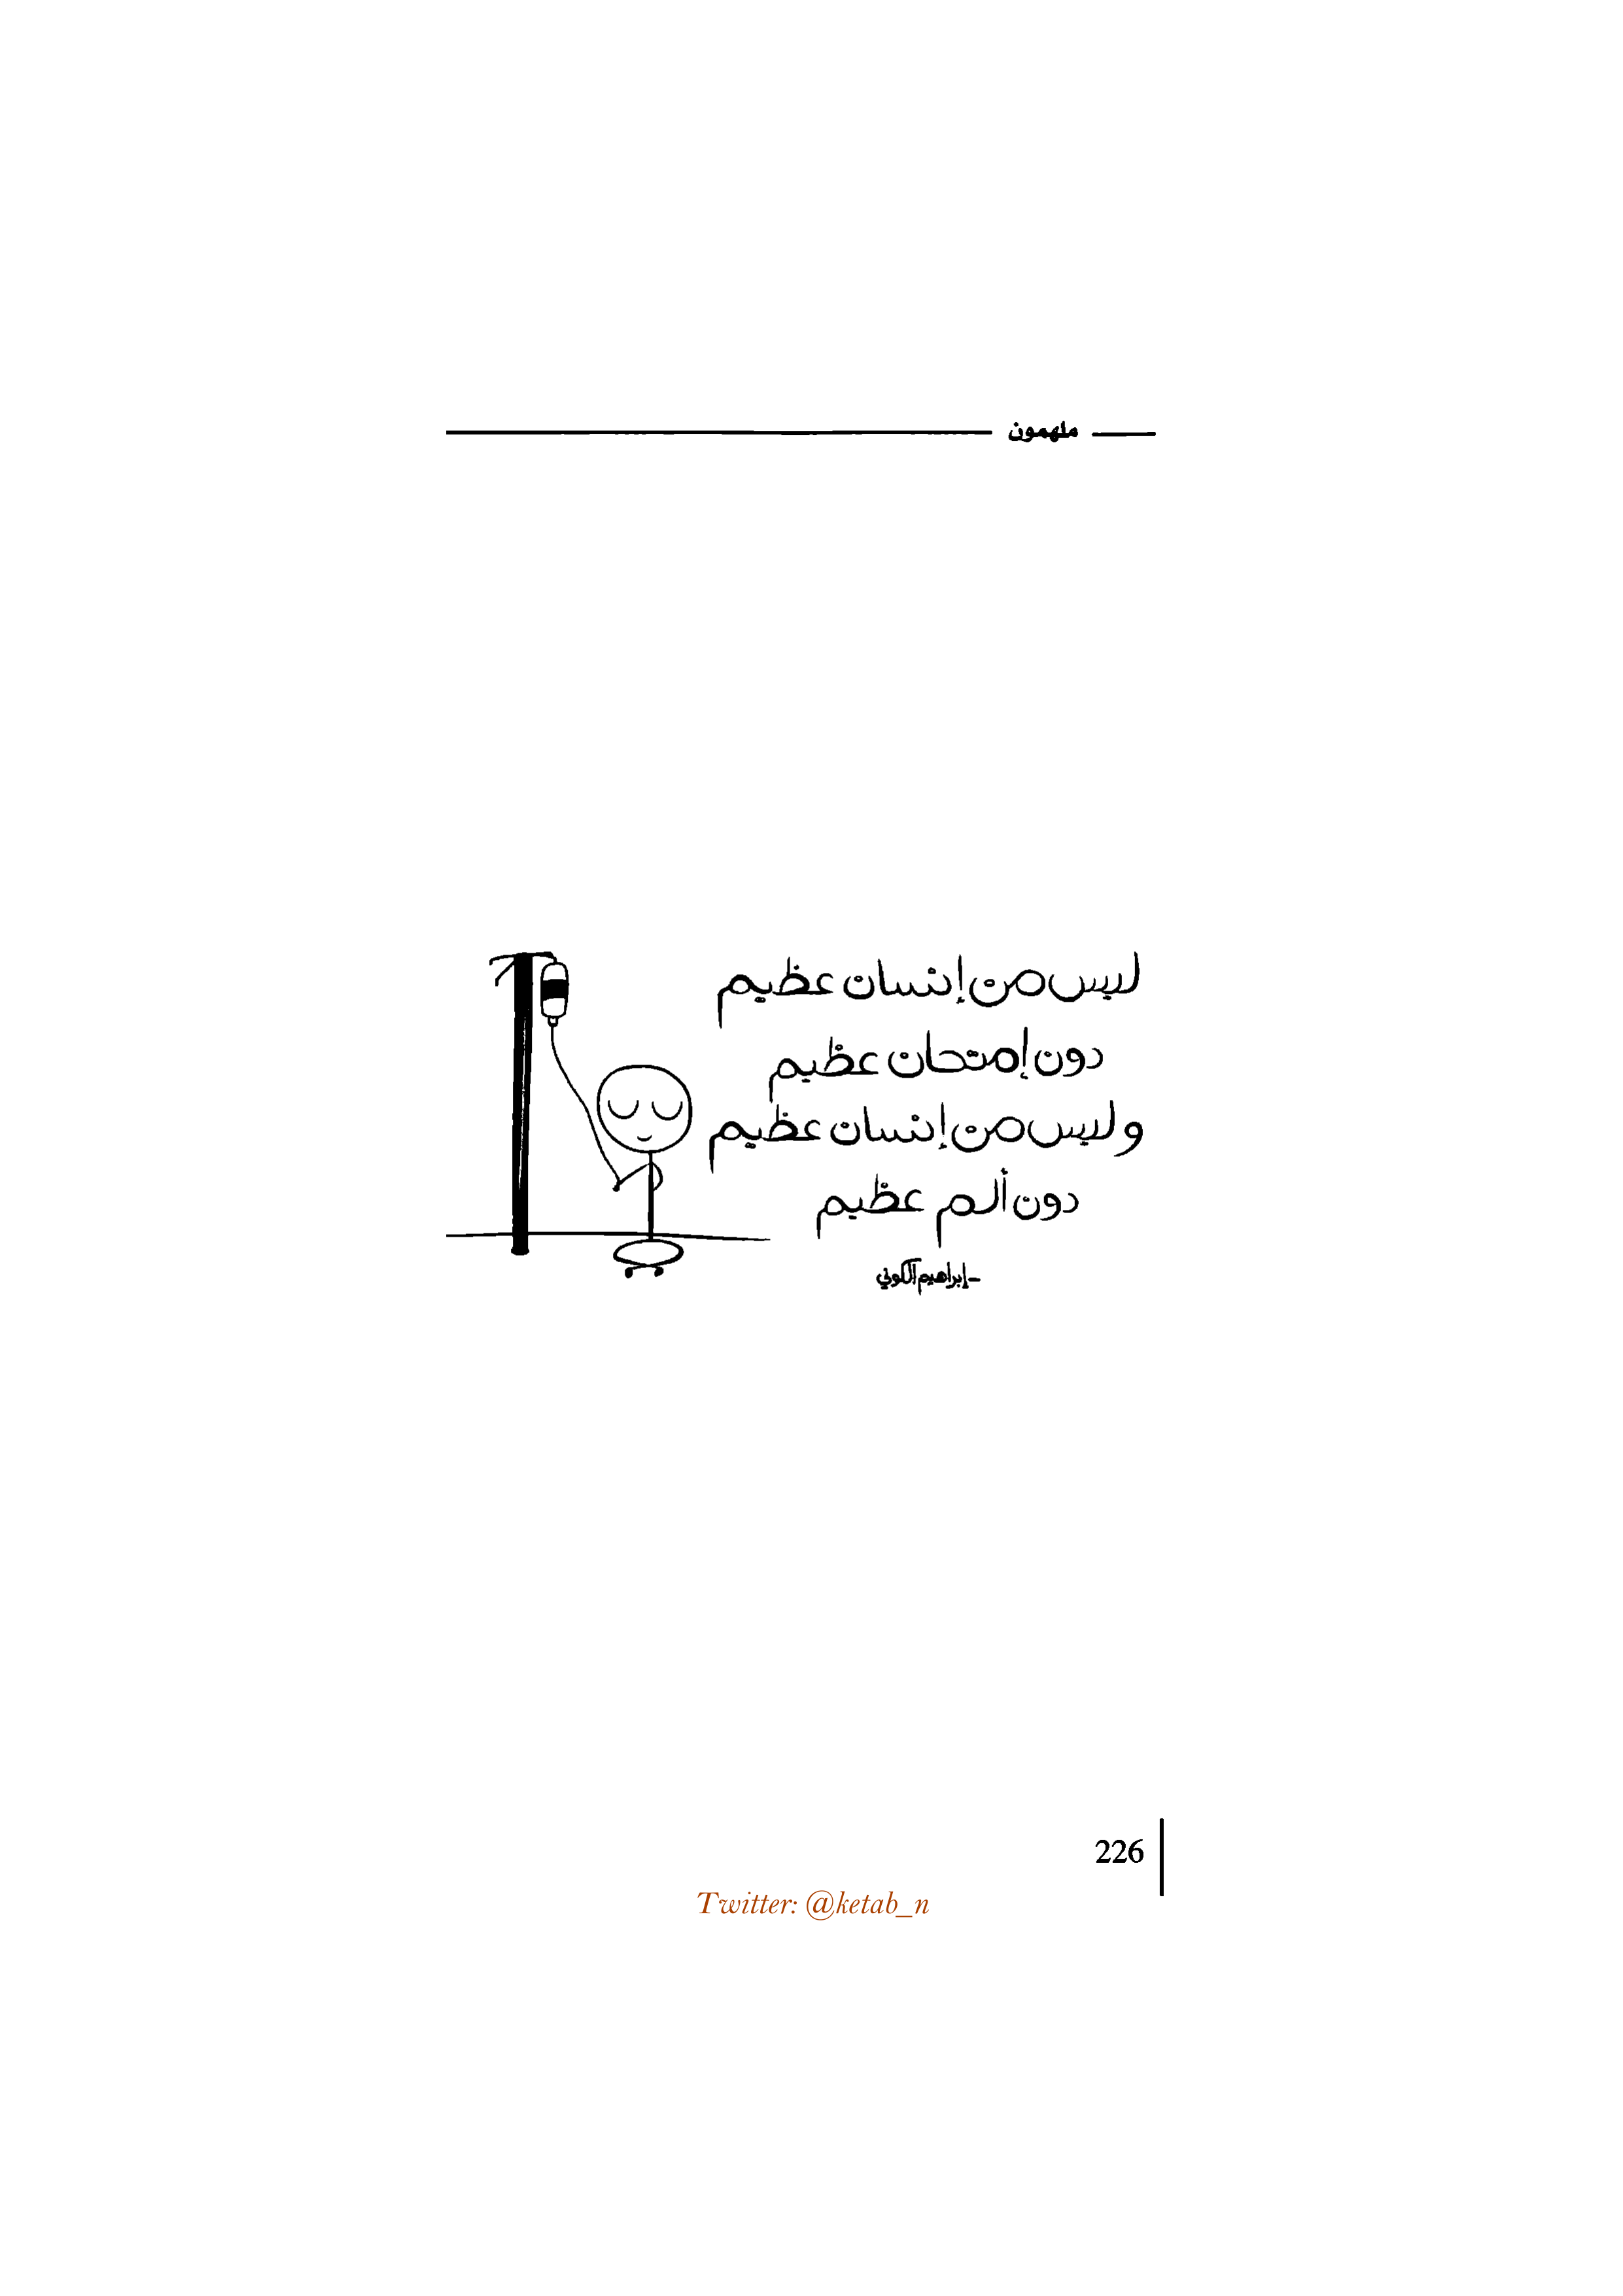 ملهمون
ليس من إنسان عظيم
دون إمتحان عظيم
و ليس من إنسان عظيم
دون ألم عظيم
-إبراهيم الكوني
226
Twitter: @ketab_n